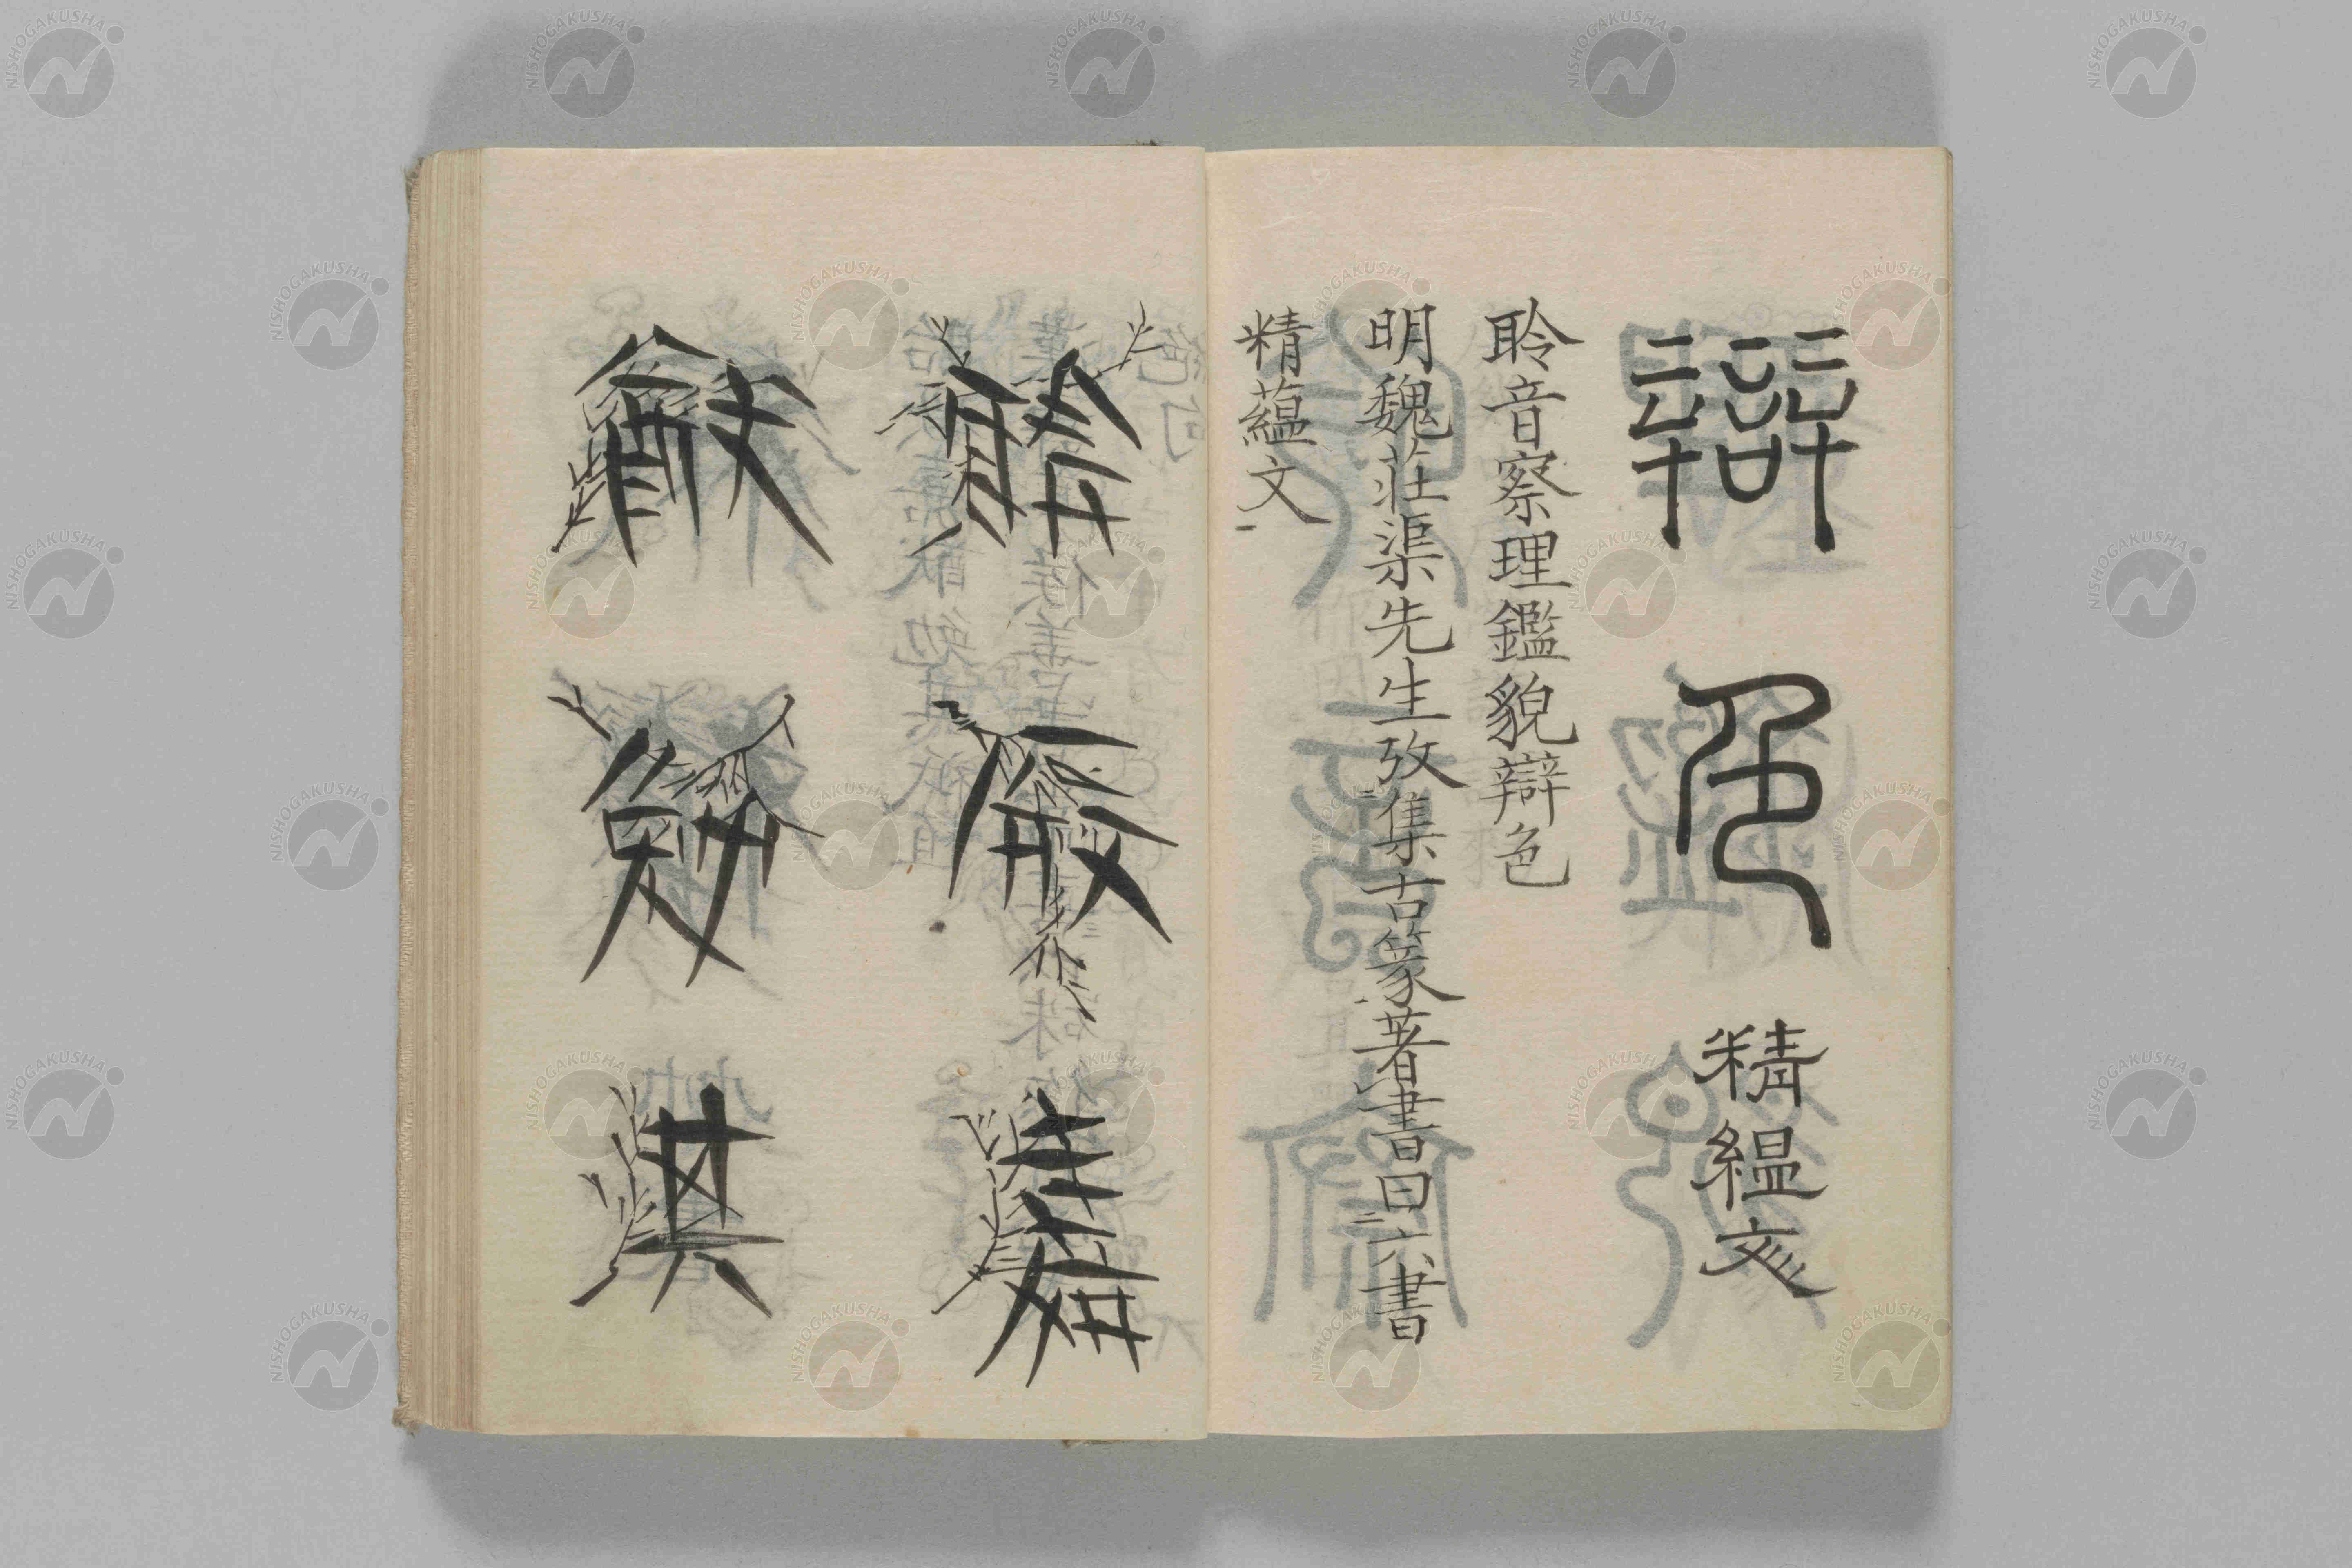 辯色
精緼文
聆音察理鑑貌辯色
明魏莊渠先生攷集古篆著書曰六書
精藴文
貽厥嘉
猷勉其
NISHOGAKUSHA